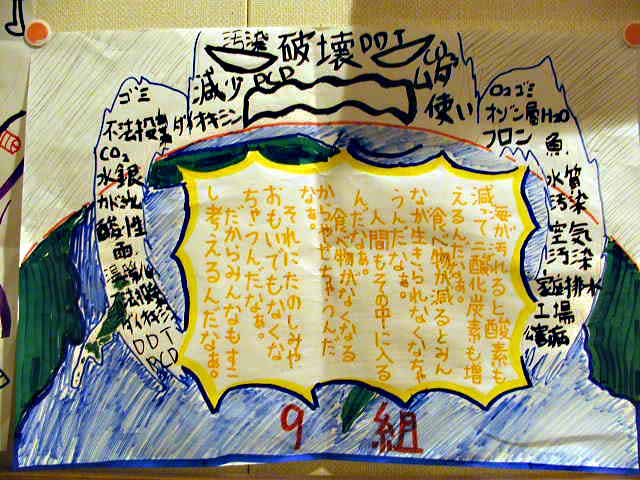 汚染
破壊
DDT
CO2
減少
PCD
ムダ
使い
ダイオキシン
ゴミ
不法投棄
CO2
水銀
酸性
雨
不法投棄
ダイオキシン
DDT
PCD
O2ゴミ
オゾン層H2O
フロン
魚
水質
汚染
空気
汚染
家庭排水
工場
公害病
海が汚れると酸素も
減って二酸化炭素も増
えるんだなぁ。
食べ物が減るとみん
なが生きられなくなちゃ
うんだなぁ。
人間もその中に入る
んだなぁ。
食べ物がなくなる
からやせちゃうんだ
なぁ。
それにたのしみや
おもいでもなくな
ちゃうんだなぁ。
だからみんなもすこ
し考えるんだなぁ。
9組